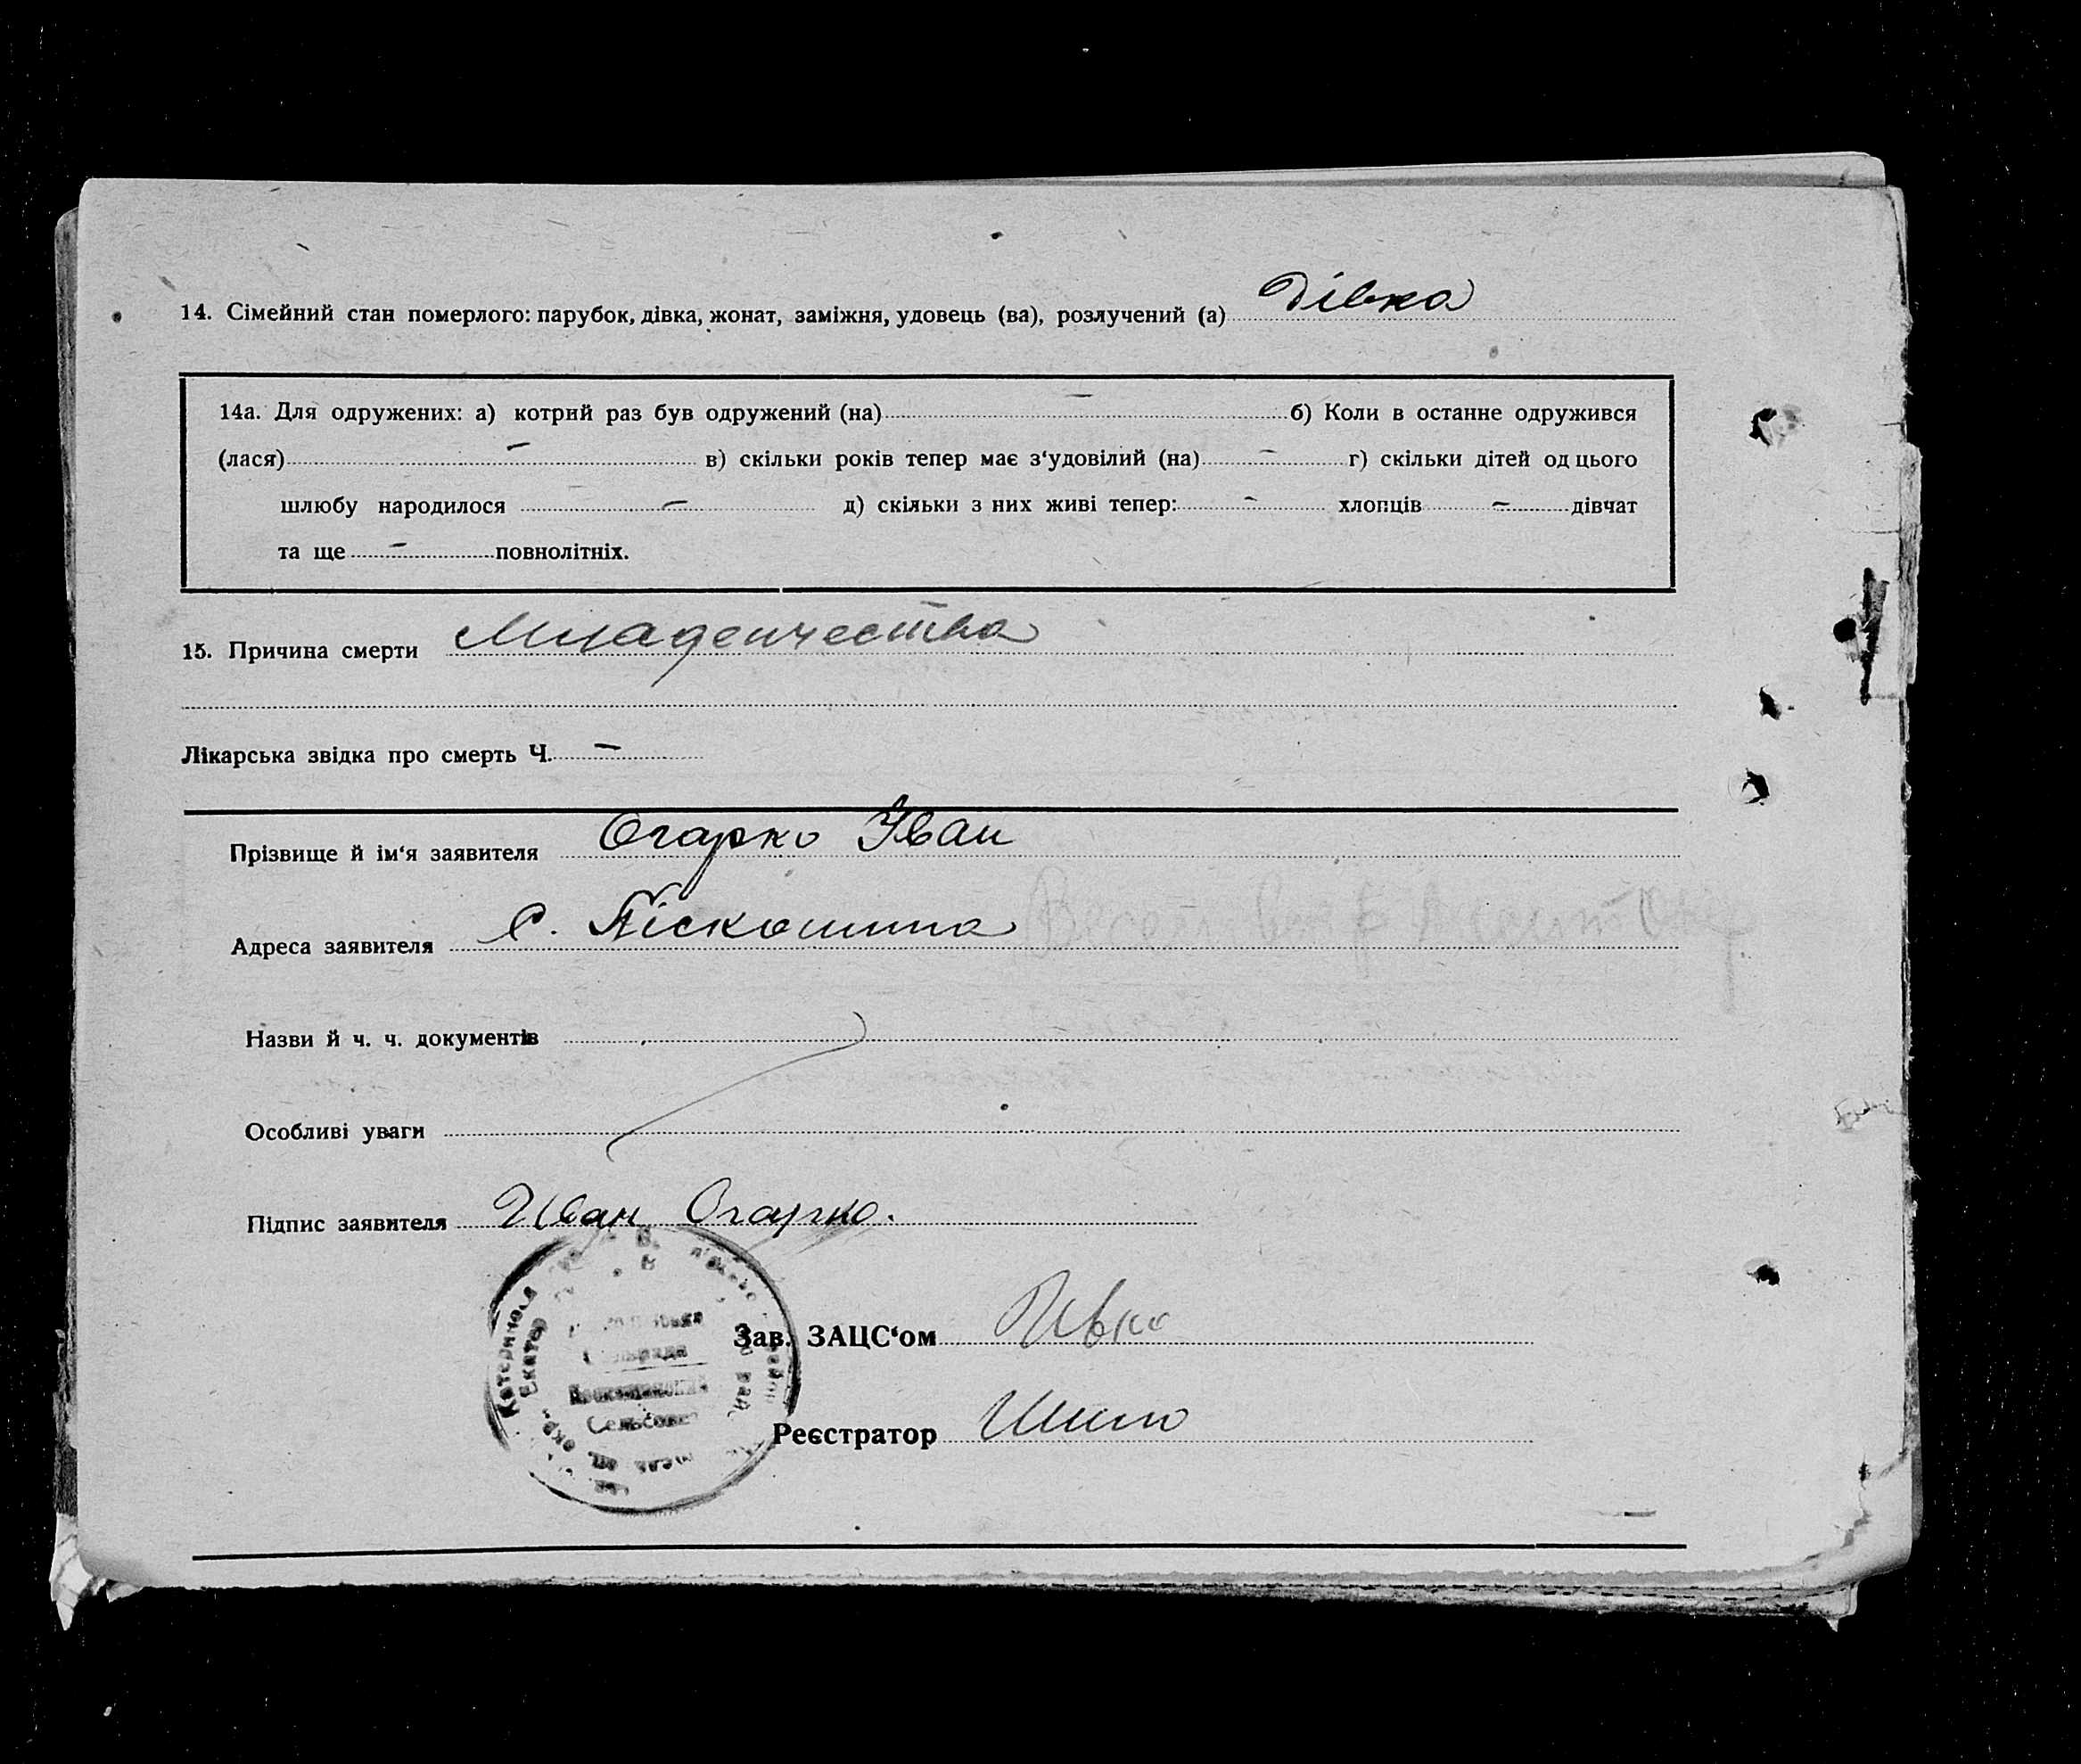 14. Сімейний стан померлого: парубок, дівка, жонат, заміжня, удовець (ва), розлучений (а) Дівка
14а. Для одружених: а) котрий раз був одружений (на) – б) Коли в останне одружився
(лася) – в) скільки років тепер має з‘удовілий (на) – г) скільки дітей од цього
шлюбу народилося – д) скільки з них живі тепер: – хлопців – дівчат
та ще – повнолітніх.
15. Причина смерти Младенчества
Лікарська звідка про смерть Ч. –
Прізвище й ім‘я заявителя Огарко Іван
Адреса заявителя с. Піскошина
Назви й ч. ч. документів
Особливі уваги
Підпис заявителя Иван Огарко.
Зав. ЗАЦС‘ом
Реєстратор Шило
Сельсовет